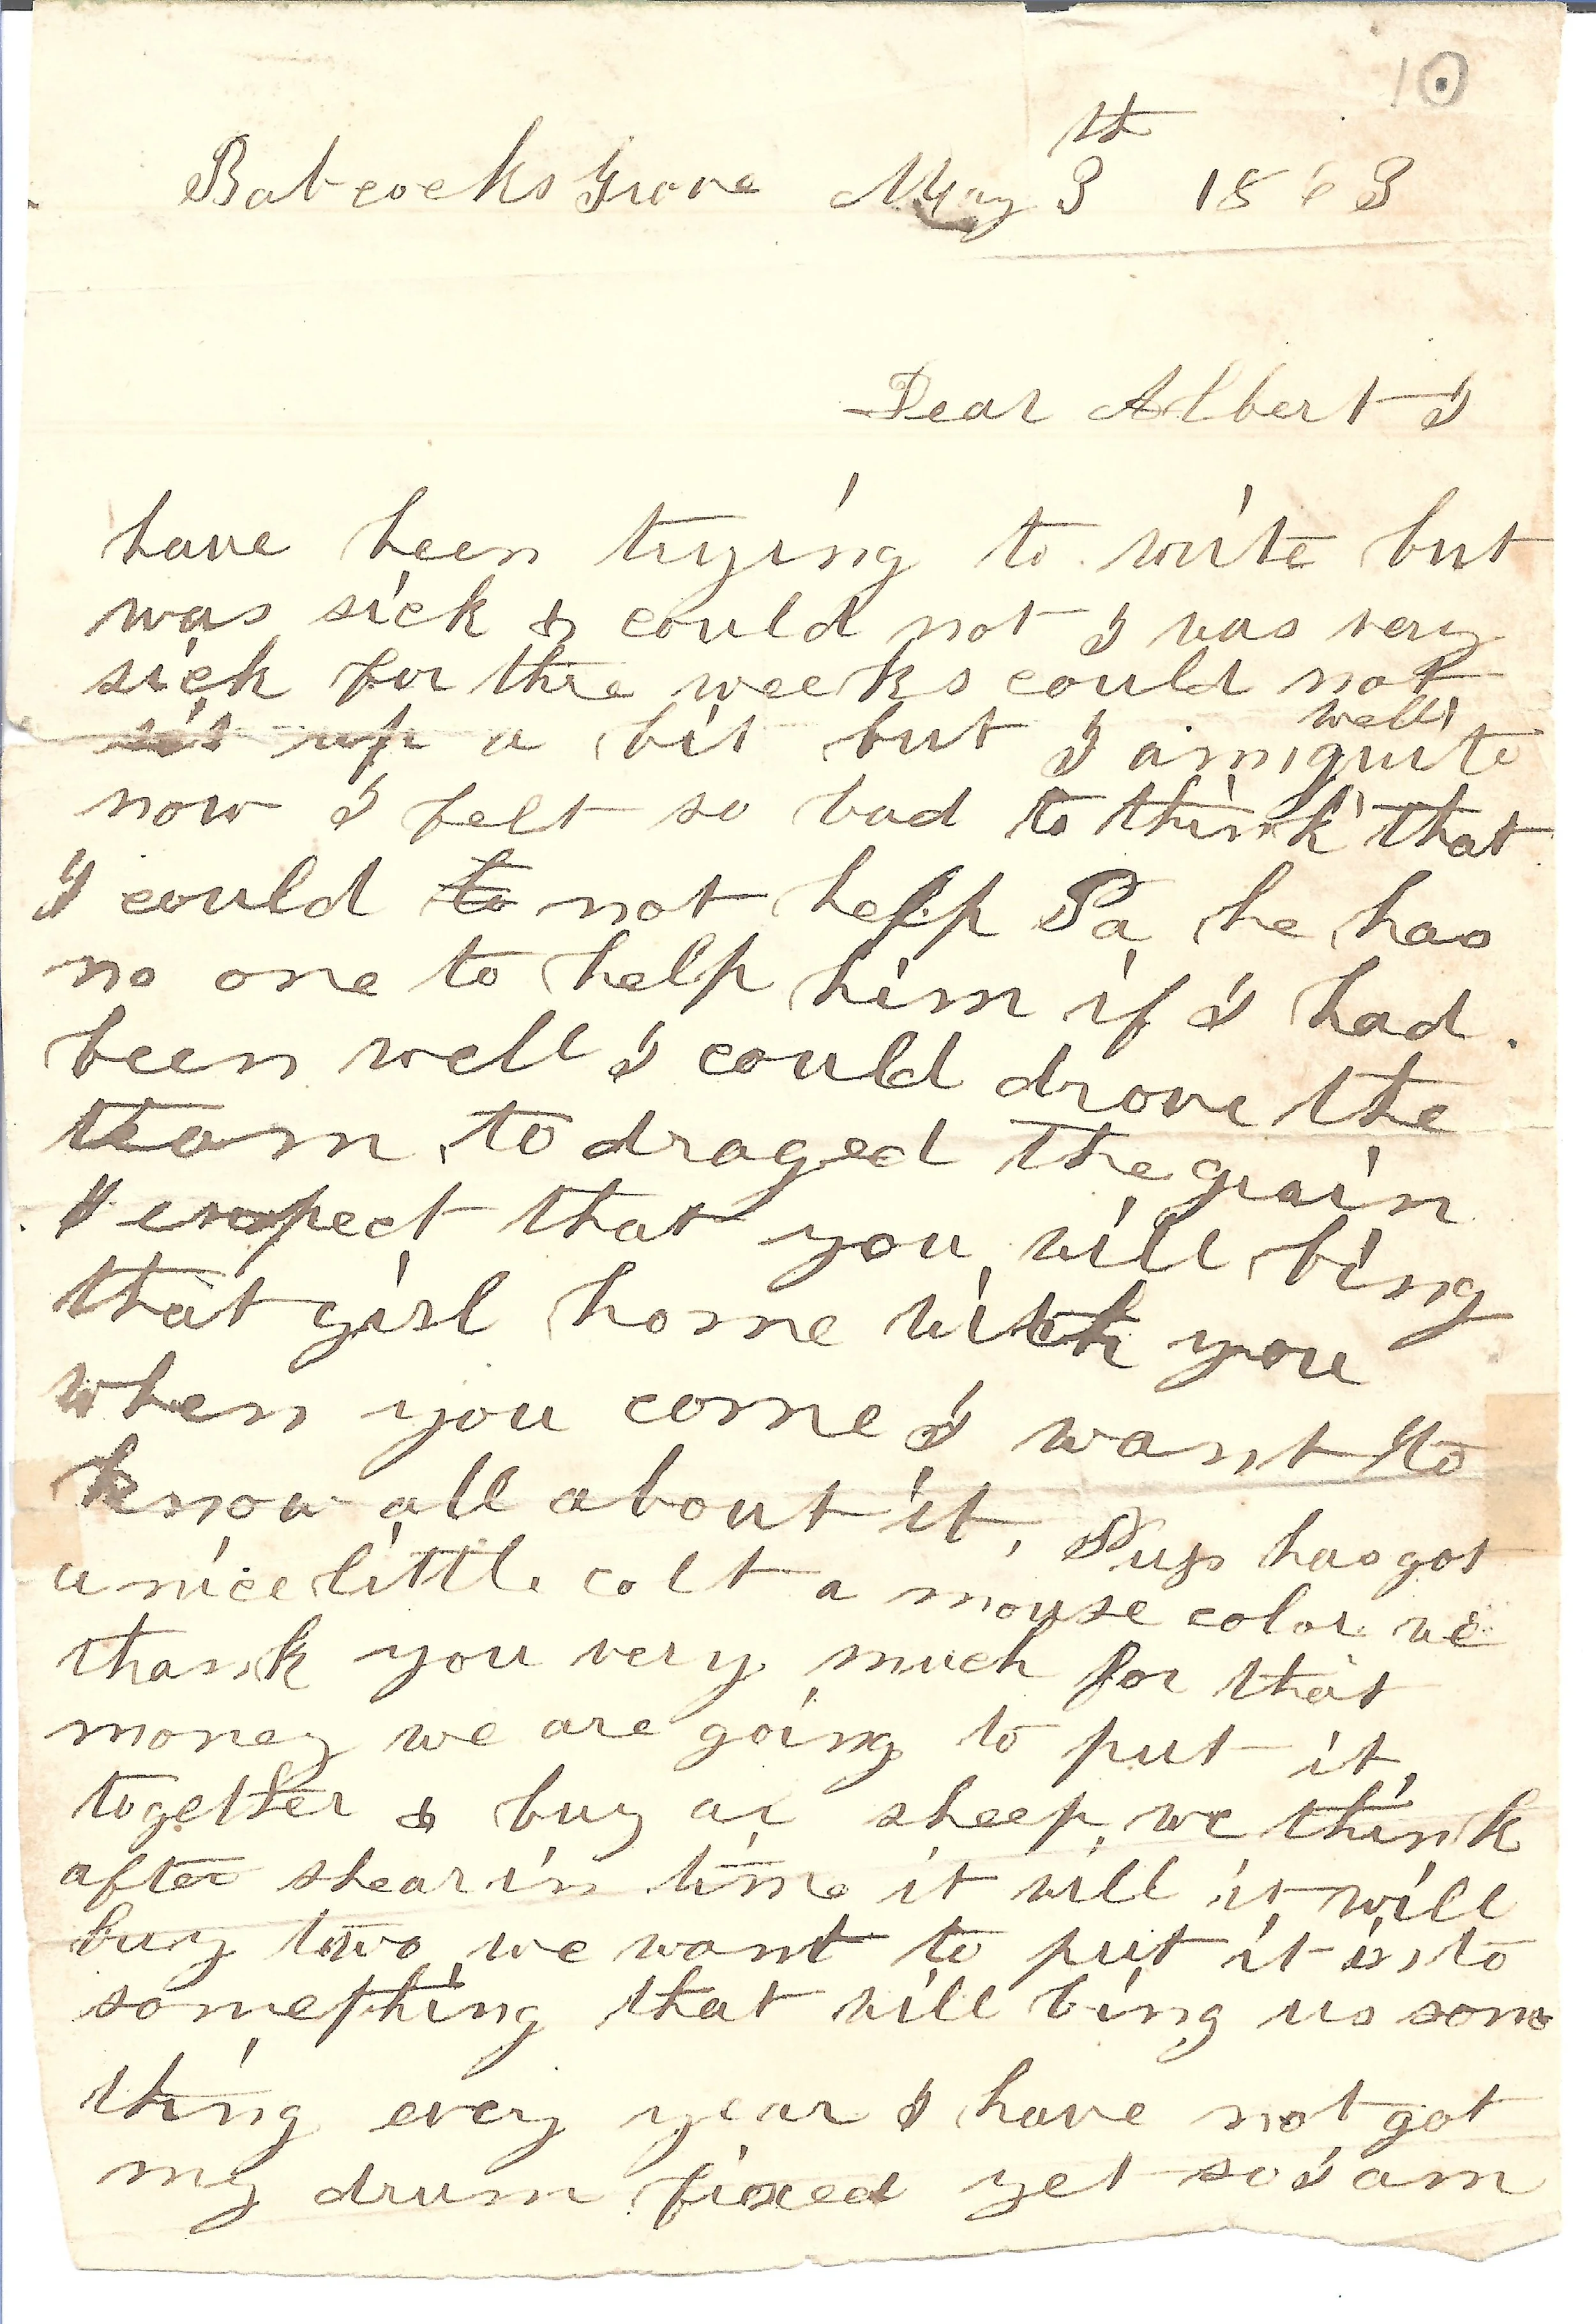 10
Babcocks Grove May 3th 1863
Dear Albert I
have been trying to write but
was sick & could not I was very
sick for thre weeks could not
sit up a bit but I am quite well
now I felt so bad to think that
I could to not help Pa he has
no one to help him if I had
been well I could drove the
team to draged the grain
I expect that you will bing
that girl home with you
when you come I want to
know all about it, Pup has got
a nice little colt a mouse color we
thank you very much for that
money we are going to put it
together & buy a sheep, we think
after shearin time it will it will
buy two we want to put it into
something that will bing us some
thing every year I have not got
my drum fixed yet so I am